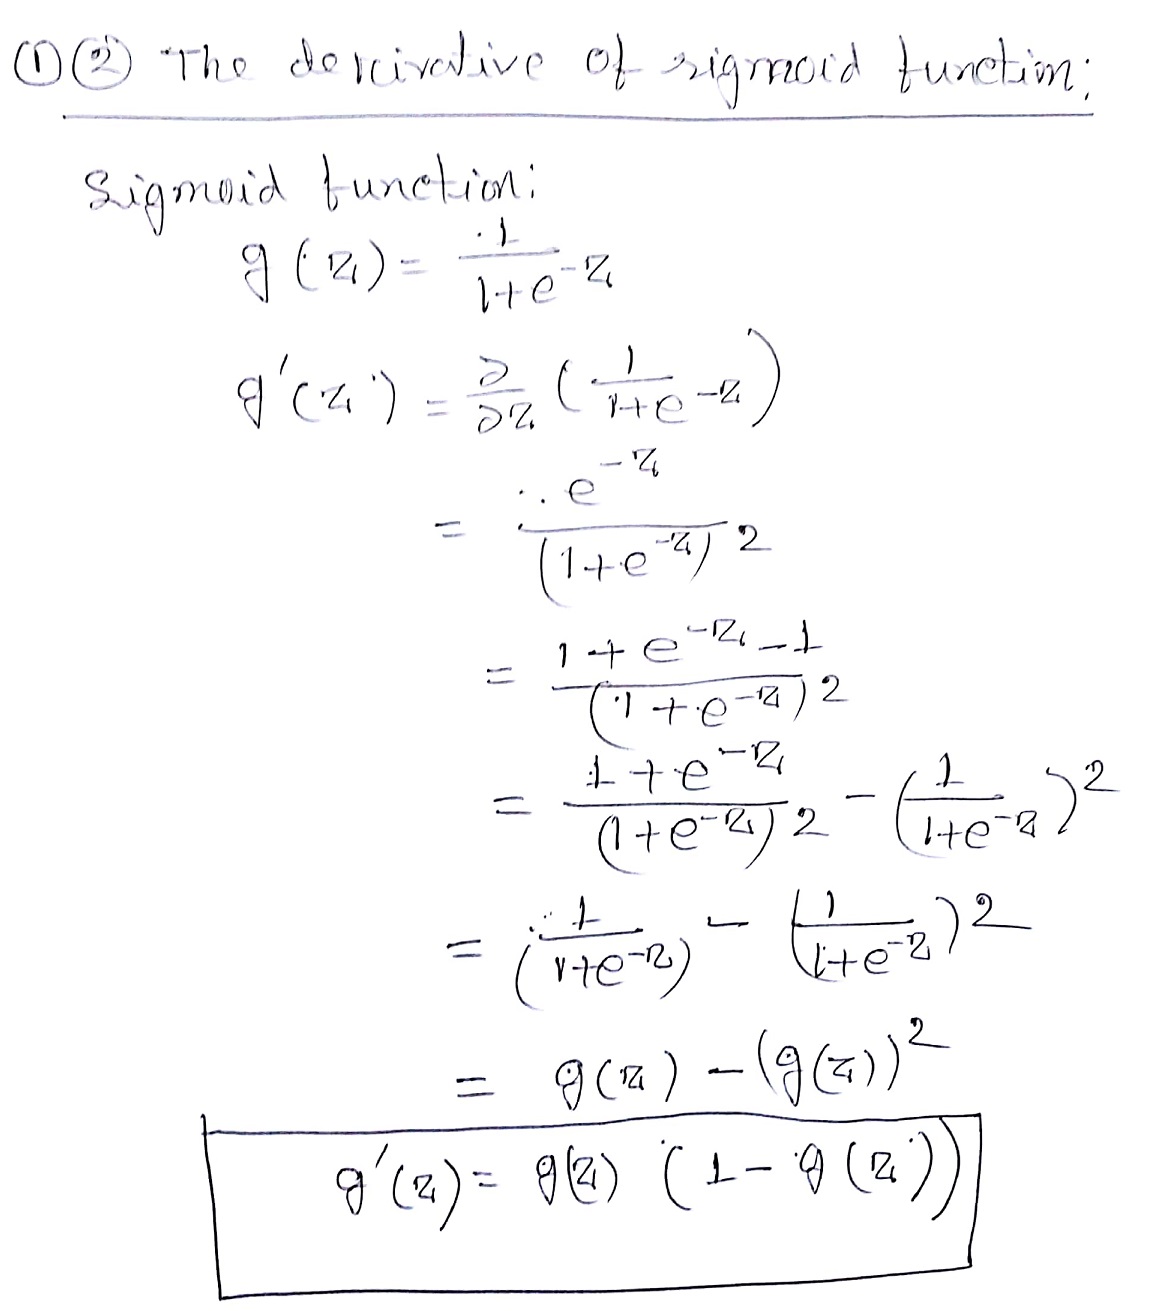 ①② The derivative of sigmoid function:
Sigmoid function:
g(z) = 1/(1+e^-z)
g'(z) = ∂/∂z (1/(1+e^-z))
= e^-z/(1+e^-z)^2
= (1+e^-z-1)/(1+e^-z)^2
= (1+e^-z)/(1+e^-z)^2 - (1/(1+e^-z))^2
= 1/(1+e^-z) - (1/(1+e^-z))^2
= g(z) - (g(z))^2
g'(z) = g(z) (1 - g(z))